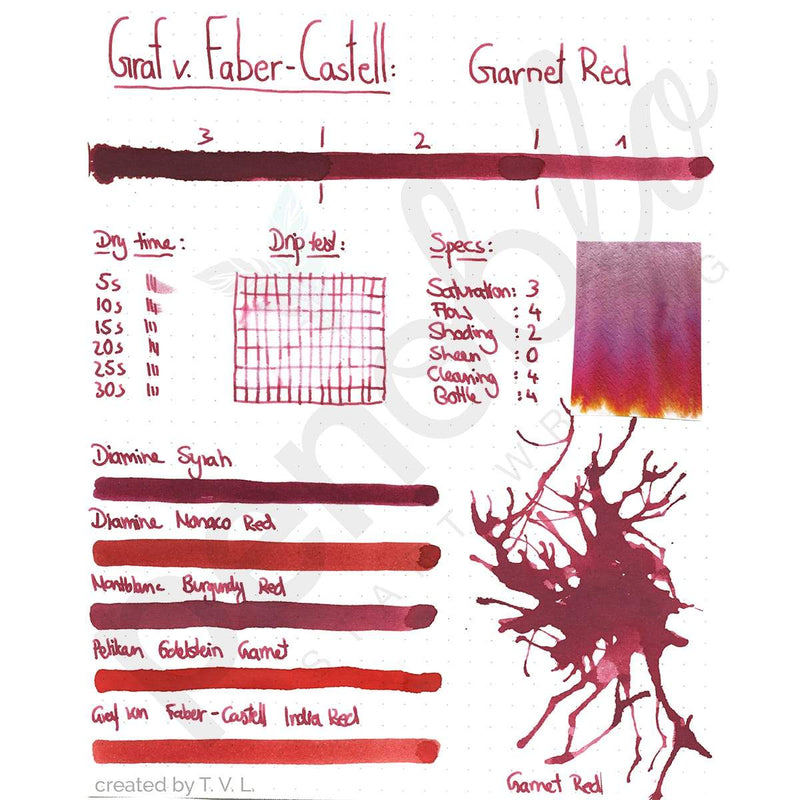 Graf v. Faber-Castell: Garnet Red
3 2 1
Dry time: Drip test: Specs:
5s
10s
15s
20s
25s
30s
Saturation: 3
Flow : 4
Shading : 2
Sheen : 0
Cleaning : 4
Bottle : 4
Diamine Syrah
Diamine Monaco Red
Montblanc Burgundy Red
Pelikan Edelstein Garnet
Graf von Faber-Castell India Red
Garnet Red
created by T. V. L.
penoblo
START WRITING